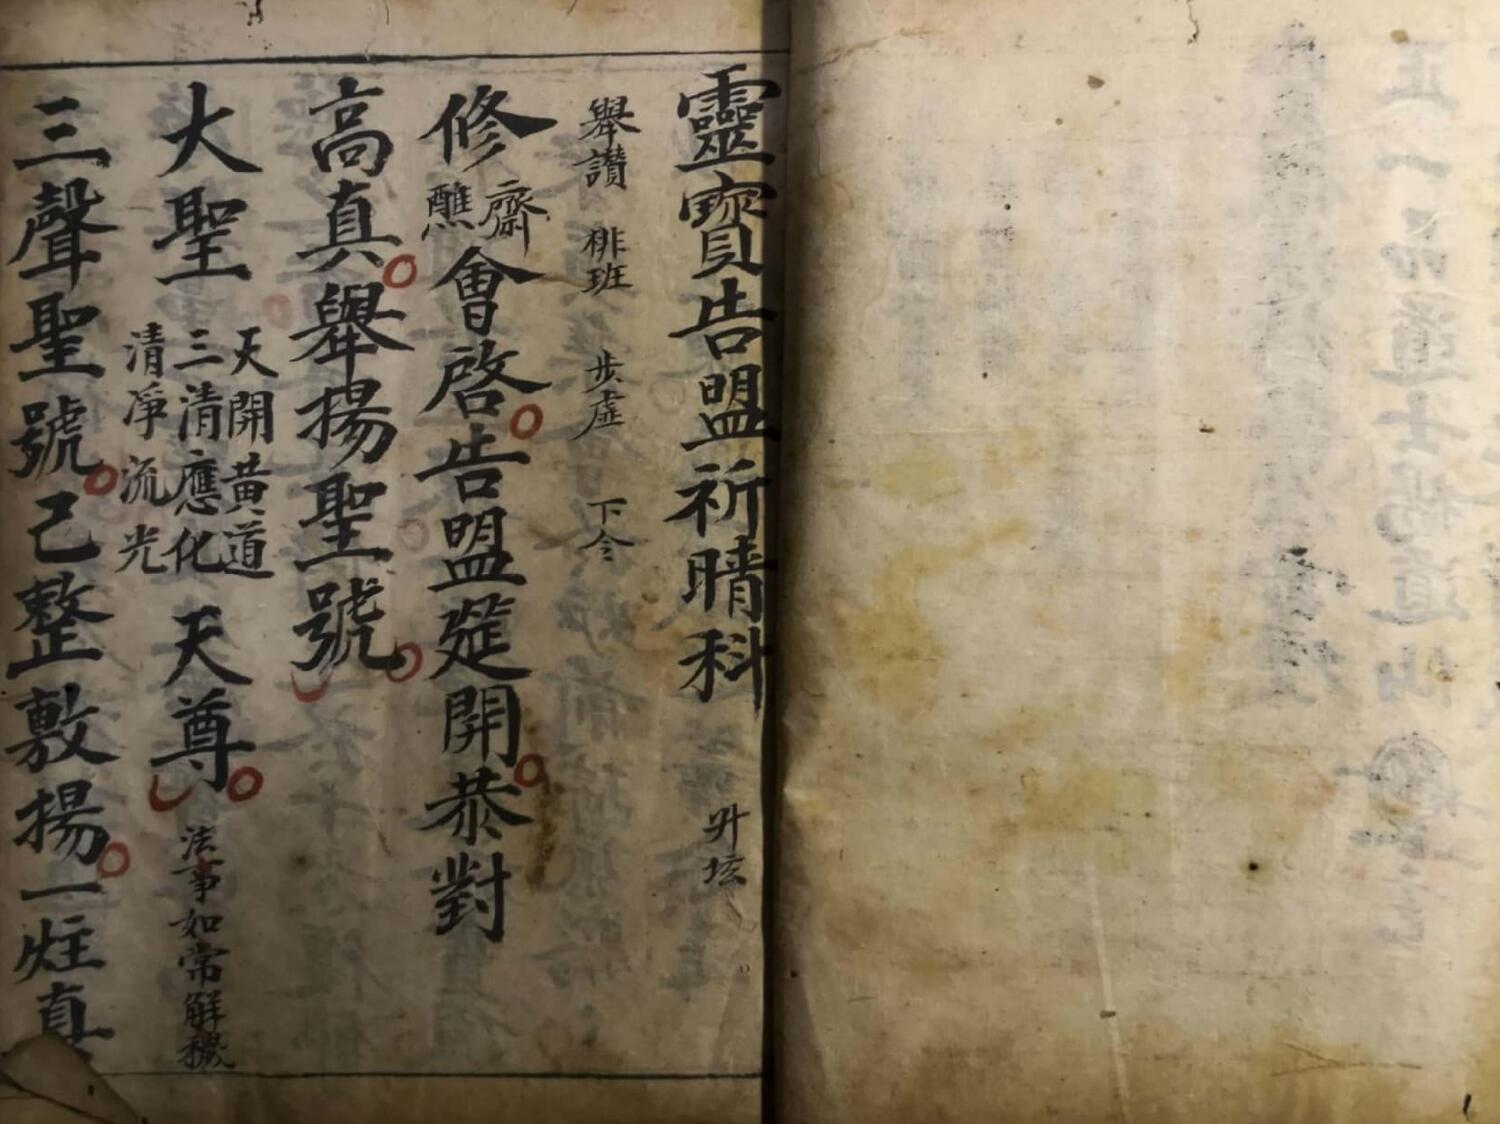 靈寶告盟祈晴科 升坛
舉讃 排班 步虛 下令
修齋醮會啓告盟筵開恭對
高真舉揚聖號
大聖
天開黄道
三清應化
清淨流光
天尊 法事如常解穢
三聲聖號已整敷揚一炷真